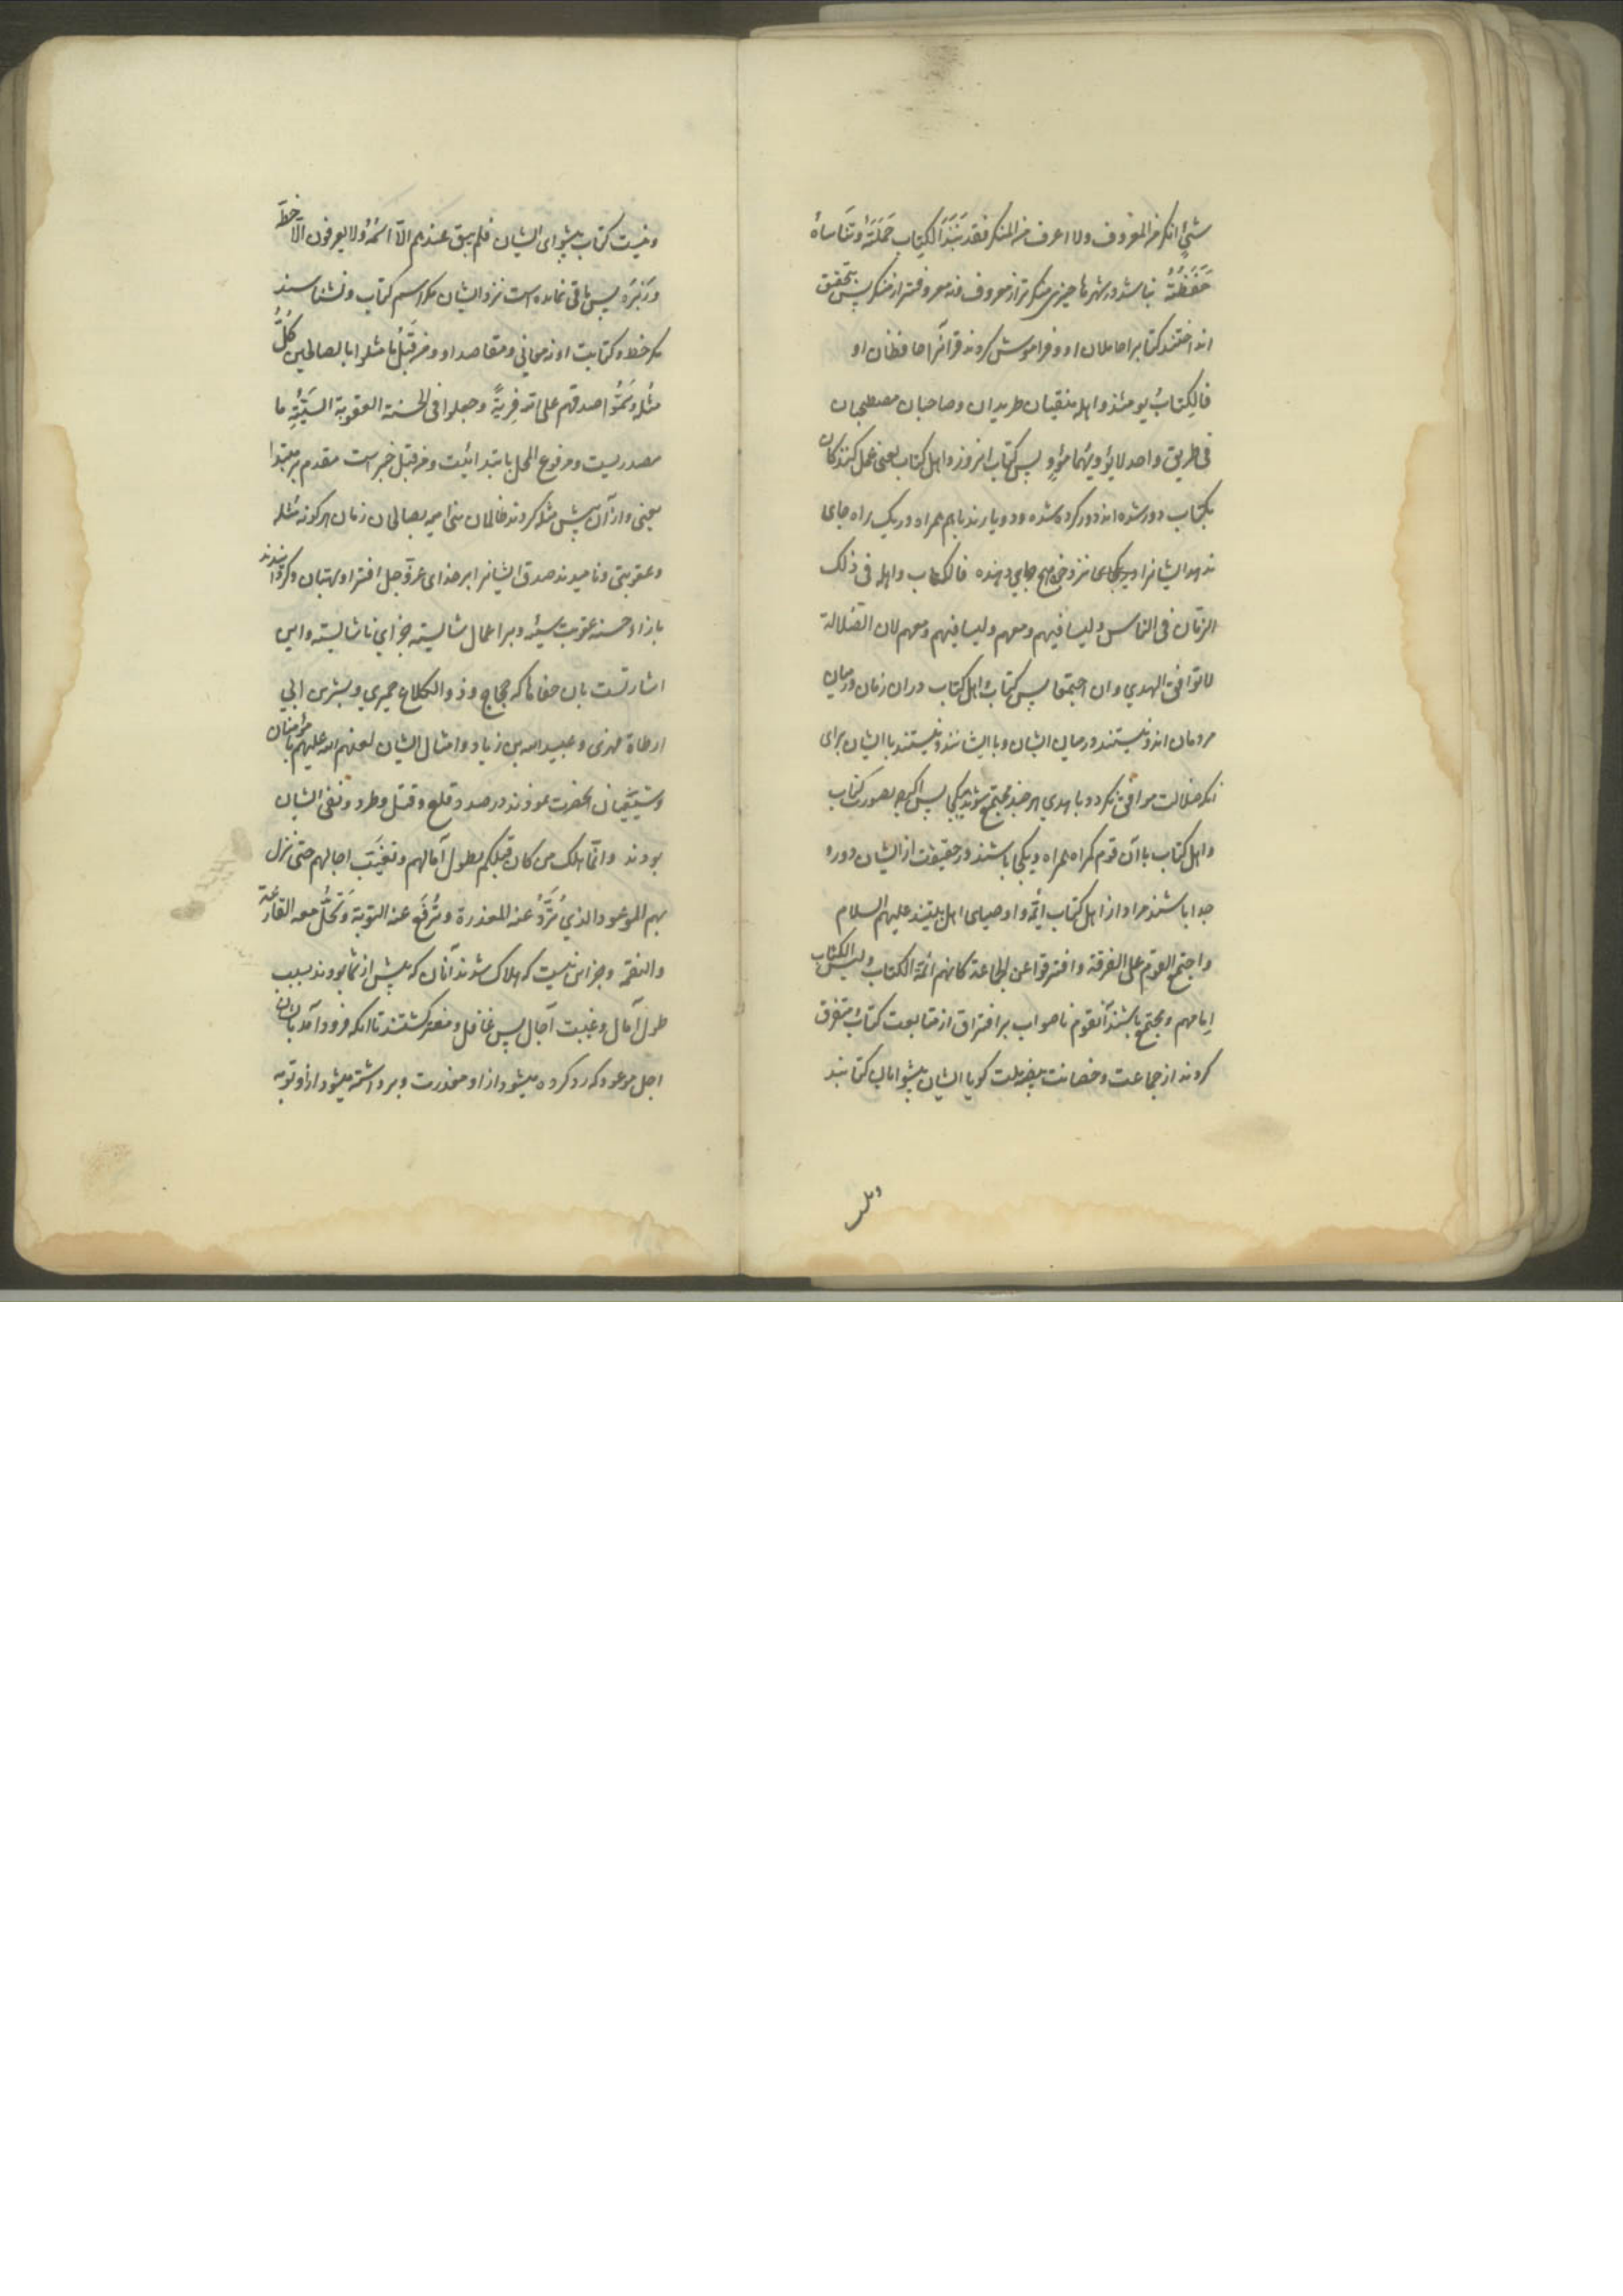 شیءٌ انکر من المعروف ولا اعرف من المنکر فقد نَبَذَ الکِتابَ حَمَلَتُهُ وتَنَاسَاهُ
حَفَظَتُهُ نباشد در شهرها چیزی منکرتر از معروف و نه معروفتر از منکر پس بتحقیق
انداختند کتابرا حاملان او و فراموش کردند قرآنرا حافظان او
فالکِتابُ یومئذ واهله منفیان طریدان وصاحبان مصطحبان
فی طریق واحد لا یؤویهُما مؤوٍ پس کتاب امروز و اهل کتاب یعنی عمل کنندکان
بکتاب دور شده اند و دور کرده شده و دو یارند باهم همراه در یک راه جای
ندهد ایشانرا و بجای نزد خود هیچ جای دهنده فالکتاب واهله فی ذلک
الزمان فی الناس ولیسا فیهم ومعهم ولیسا فیهم ومعهم لان الضلالة
لا توافق الهدی وان اجتمعا پس کتاب و اهل کتاب در ان زمان در میان
مردمان اند و نیستند در میان ایشان و با ایشانند و نیستند با ایشان برای
انکه ضلالت موافق نکردد با هدی هر چند مجتمع شوند بیکجا پس اکرچه بصورت کتاب
واهل کتاب با آن قوم کمراه همراه و یکجا باشند در حقیقت از ایشان دور و
جدا باشند مراد از اهل کتاب ائمه و اوصیای اهل بیتند علیهم السلام
واجتمع القوم علی الفرقة وافترقوا عن الجماعة کانهم ائمة الکتاب ولیس الکتاب
اِمامهم و مجتمع باشند آنقوم ناصواب بر افتراق از متابعت کتاب و متفرق
کردند از جماعت و حضانت بفضیلت کویا ایشان پیشوایان کتابند
و نیست کتاب پیشوای ایشان فلم یبق عندهم الّا اسمُهُ ولا یعرفون الّا خطَّه
وزَبْرَه پس باقی نمانده است نزد ایشان مکر اسم کتاب و نشناسند
مکر خط و کتابت او نه معانی و مقاصد او ومن قَبْلُ ما مثلوا بالصالحین کُلَّ
مثُله وسَمَّوْا صدقهم علی الله فِریةً وجعلوا فی الحسنة العقوبة السیّئةِ ما
مصدریست و مرفوع المحل بابتدائیت و من قبل خبر است مقدم بر مبتدا
یعنی و از آن پیش مثله کردند ظالمان بنی امیه بصالحان زمان هر کونه مثله
وعقوبتی و نامیدند صدق ایشانرا بر خدای عزّ و جل افترا و بهتان و کردانیدند
بازاء حسنه عقوبت سیئه و بر اعمال شایسته جزای ناشایسته و این
اشارتست بان جفاها که حجاج و ذو الکلاع حمیری و بسر بن ابی
ارطاة فهری و عبیدالله بن زیاد و امثال ایشان لعنهم الله علیهم با مؤمنان
وشیعیان انحضرت نمودند و در صدد قلع و قتل و طرد و نفی ایشان
بودند وانّما هلک من کان قبلکم بطول آمالهم وتغیّب اجالهم حتی نزل
بهم الموعود الذی تُرَدُّ عنه المعذرة وتُرْفَع عنه التوبة وتَحُلُّ معه القارعة
والنقمة و جز این نیست که هلاک شدند آنان که پیش از شما بودند بسبب
طول آمال و غیبت آجال پس غافل و مغتر کشتند تا انکه فرود آمد بایشان
اجل موعود که رد کرده میشود از او معذرت و برداشته میشود از او توبه